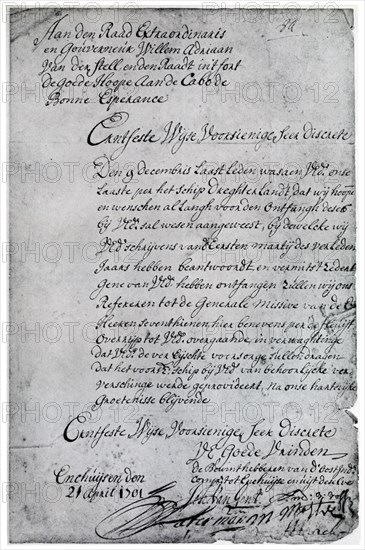 Aan den Raad Extraordinaris
en Gouverneur Willem Adriaan
Van der Stell en den Raadt int fort
de Goede Hoope Aan de Cabo de
Bonne Esperance
Erntfeste Wijse Voorsienige Seer Discrete
Den 9 decembris laastleden was aen Vle onse
laaste per het schip Dreghterlandt, dat wij hoopen
en wenschen al langh voor den ontfangh deses
bij Vle sal wesen aangeweest, bij dewelcke wij
Vle schrijvens van Eersten martij des verleden
Jaars hebben beantwoordt, en vermits zedert
gene van Vle hebben ontfangen zullen wij ons
Refereren tot de Generale Missive van de
Heeren seventhienen, hier benevens per de fluijt
Overrijp tot Vle overgaande, in verwaghtinge
dat Vle de vereijschte voorsorge sullen dragen
dat het voorsz schip bij Vle van behoorlijcke ver
verschinge werde geprovideert, Na onse hartelijcke
Groetenisse blijvende
Erntfeste Wijse Voorsienige Seer Discrete
Vle Goede Vrinden
De Bewinthebberen van d'oostind
comp
Enchuijsen den
21 April 1701